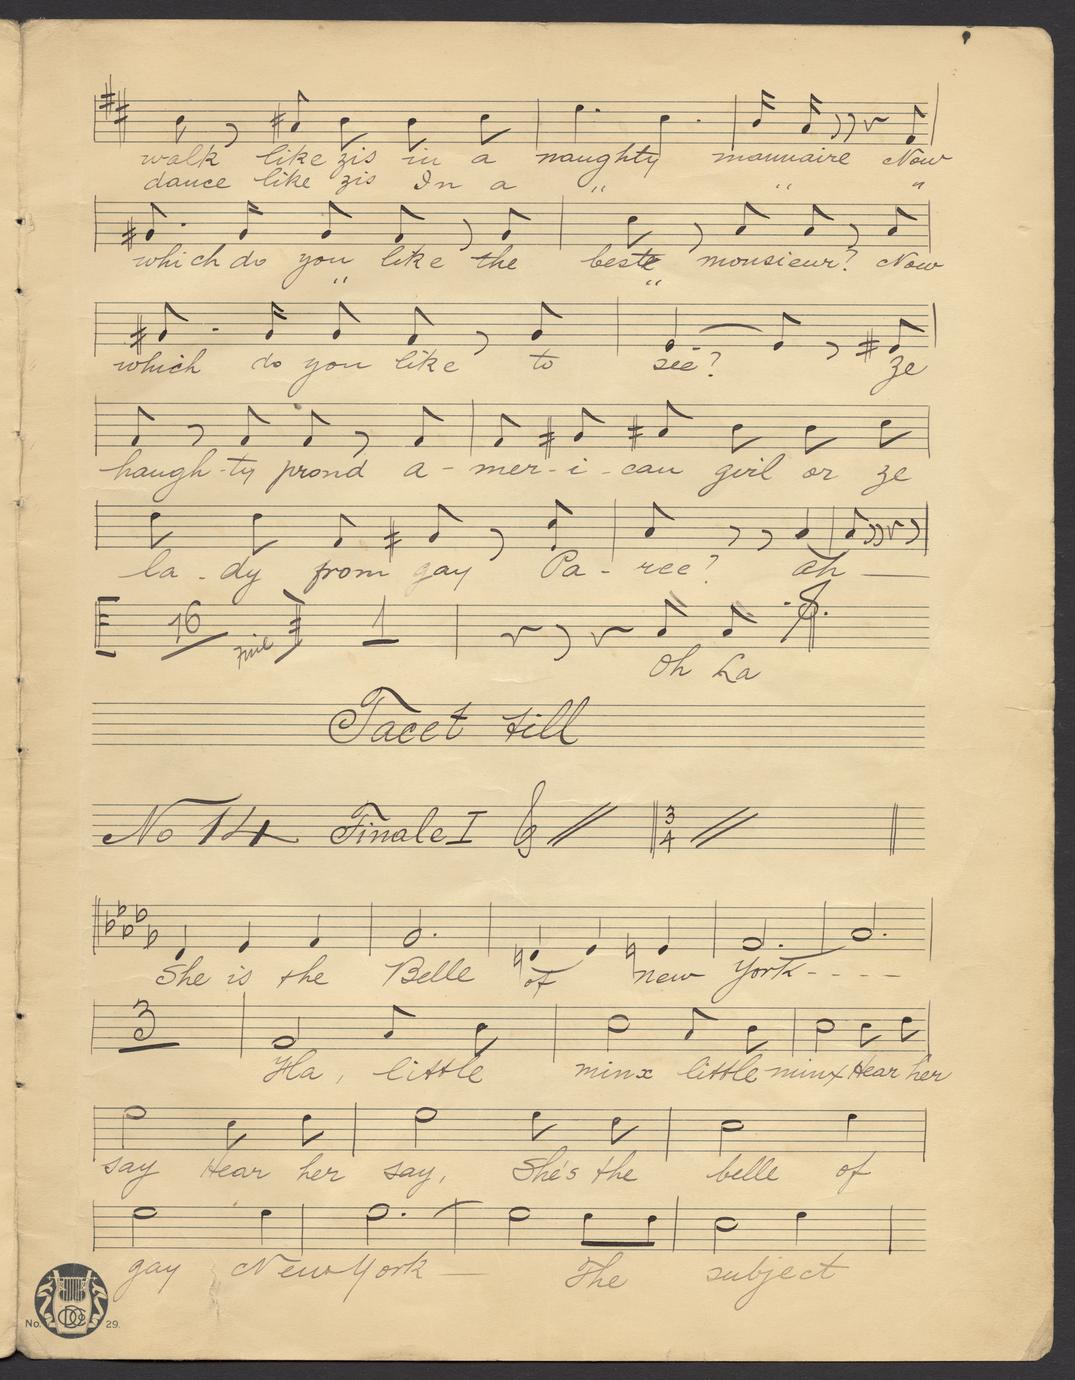 walk like zis in a naughty mannaire Now
dance like zis In a " " "
which do you like the beste monsieur? Now
" "
which do you like to see? ze
haugh-ty proud a-mer-i-can girl or ze
la-dy from gay Pa-ree? ah
16 Fine 1
Oh La
Tacet till
No 14 Finale I 3/4
She is the Belle of new York- - - -
3
Ha, little minx little minx Hear her
say Hear her say, She's the belle of
gay New York — The subject
No. 29.